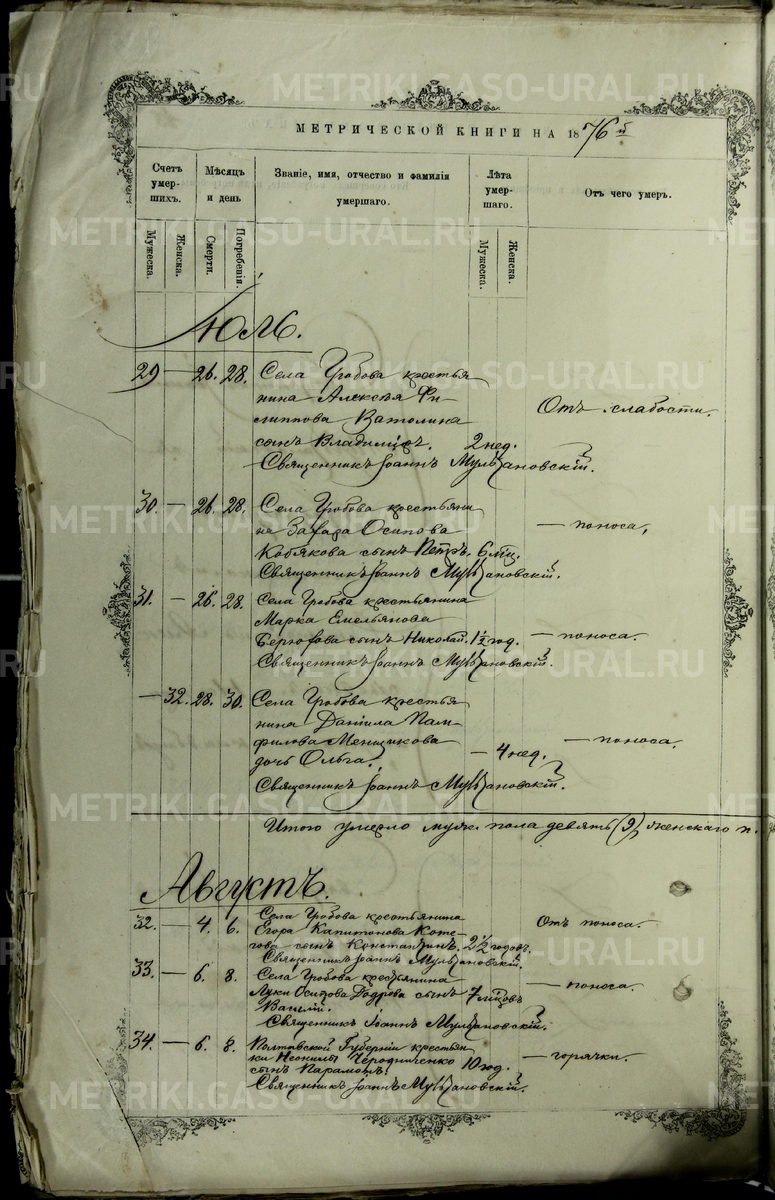 МЕТРИЧЕСКОЙ КНИГИ НА 1876й
Счетъ умер-шихъ.
Мѣсяцъ и день
Званіе, имя, отчество и фамилія умершаго.
Лѣта умер-шаго.
Отъ чего умеръ.
Мужеска.
Женска.
Смерти.
Погребенія.
Мужеска.
Женска.
Июль.
29 — 26. 28. Села Гробова крестья
нина Алексѣя Фи-
липпова Ватолина Отъ слабости.
сынъ Владиміръ. 2 нед.
Священникъ Іоаннъ
30. — 26. 28. Села Гробова крестьяни
на Захара Осипова — поноса,
Кобякова сынъ Петръ. 6 мѣц.
Священникъ Іоаннъ
31. — 26. 28. Села Гробова крестьянина
Марка Емельянова
сынъ Николай. 1½ год. — поноса.
Священникъ Іоаннъ
— 32. 28. 30. Села Гробова крестья
нина Даніила Пам-
филова Меншикова — поноса.
дочь Ольга. — 4 нед.
Священникъ Іоаннъ
Итого умерло муж. пола девять (9), женскаго п.
Августъ.
32. — 4. 6. Села Гробова крестьянина
Егора Капитонова Коте- Отъ поноса.
гова сынъ Константинъ. 2½ годовъ.
Священникъ Іоаннъ
33. — 6. 8. Села Гробова крестьянина
Луки Осипова сынъ 7 мѣцовъ — поноса.
Василій.
Священникъ Іоаннъ
34. — 6. 8. Полтавской Губерніи крестьян
ки Неонилы Чередниченко 10 год. — горячки.
сынъ Парамонъ.
Священникъ Іоаннъ
METRIKI.GASO-URAL.RU